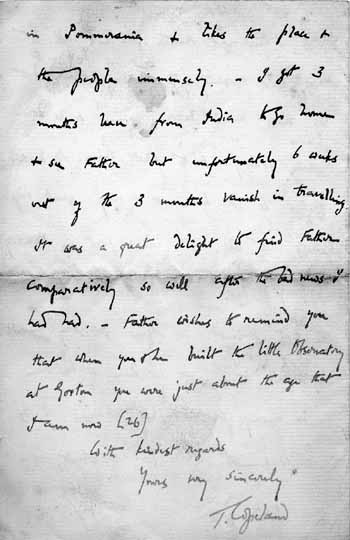 in Pommerania & likes the place &
the people immensely. - I got 3
months leave from India to go home
& see Father but unfortunately 6 weeks
out of the 3 months vanish in travelling
It was a great delight to find Father
comparatively so well after the bad news I
had had. - Father wishes to remind you
that when you & he built the little Observatory
at Gorton you were just about the age that
I am now [26]
With kindest regards
Yours very sincerely
T. Copeland